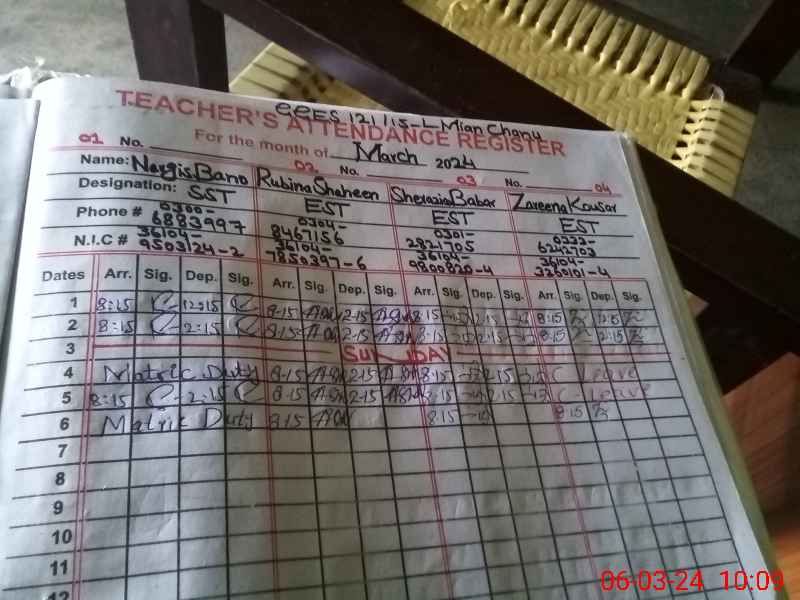 GGES 121/15-L Mian Chanu
TEACHER'S ATTENDANCE REGISTER
For the month of March 2024
01 No. 02 No. 03 No. 04
Name: Nargis Bano Rubina Shaheen Sherazia Babar Zareena Kousar
Designation: SST EST EST EST
Phone # 0300-6883997 0304-8467156 0301-2821705 0333-6242703
N.I.C # 36104-9503124-2 36104-7850397-6 36104-9800820-4 36104-3260101-4
Dates Arr. Sig. Dep. Sig. Arr. Sig. Dep. Sig. Arr. Sig. Dep. Sig. Arr. Sig. Dep. Sig.
1 8:15 12:15 8:15 12:15 8:15 12:15 8:15 12:15
2 8:15 2:15 8:15 2:15 8:15 2:15 8:15 2:15
3 SUNDAY
4 Matric Duty 8:15 2:15 8:15 2:15 C-Leave
5 8:15 2:15 8:15 2:15 8:15 2:15 C-Leave
6 Matric Duty 8:15 8:15 8:15
7
8
9
10
11
12
06-03-24 10:09